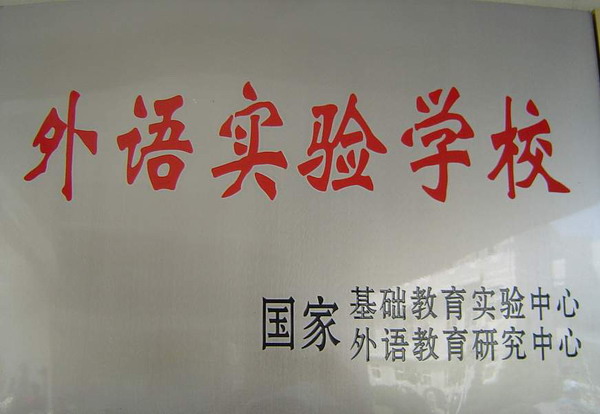 外语实验学校
国家 基础教育实验中心
外语教育研究中心